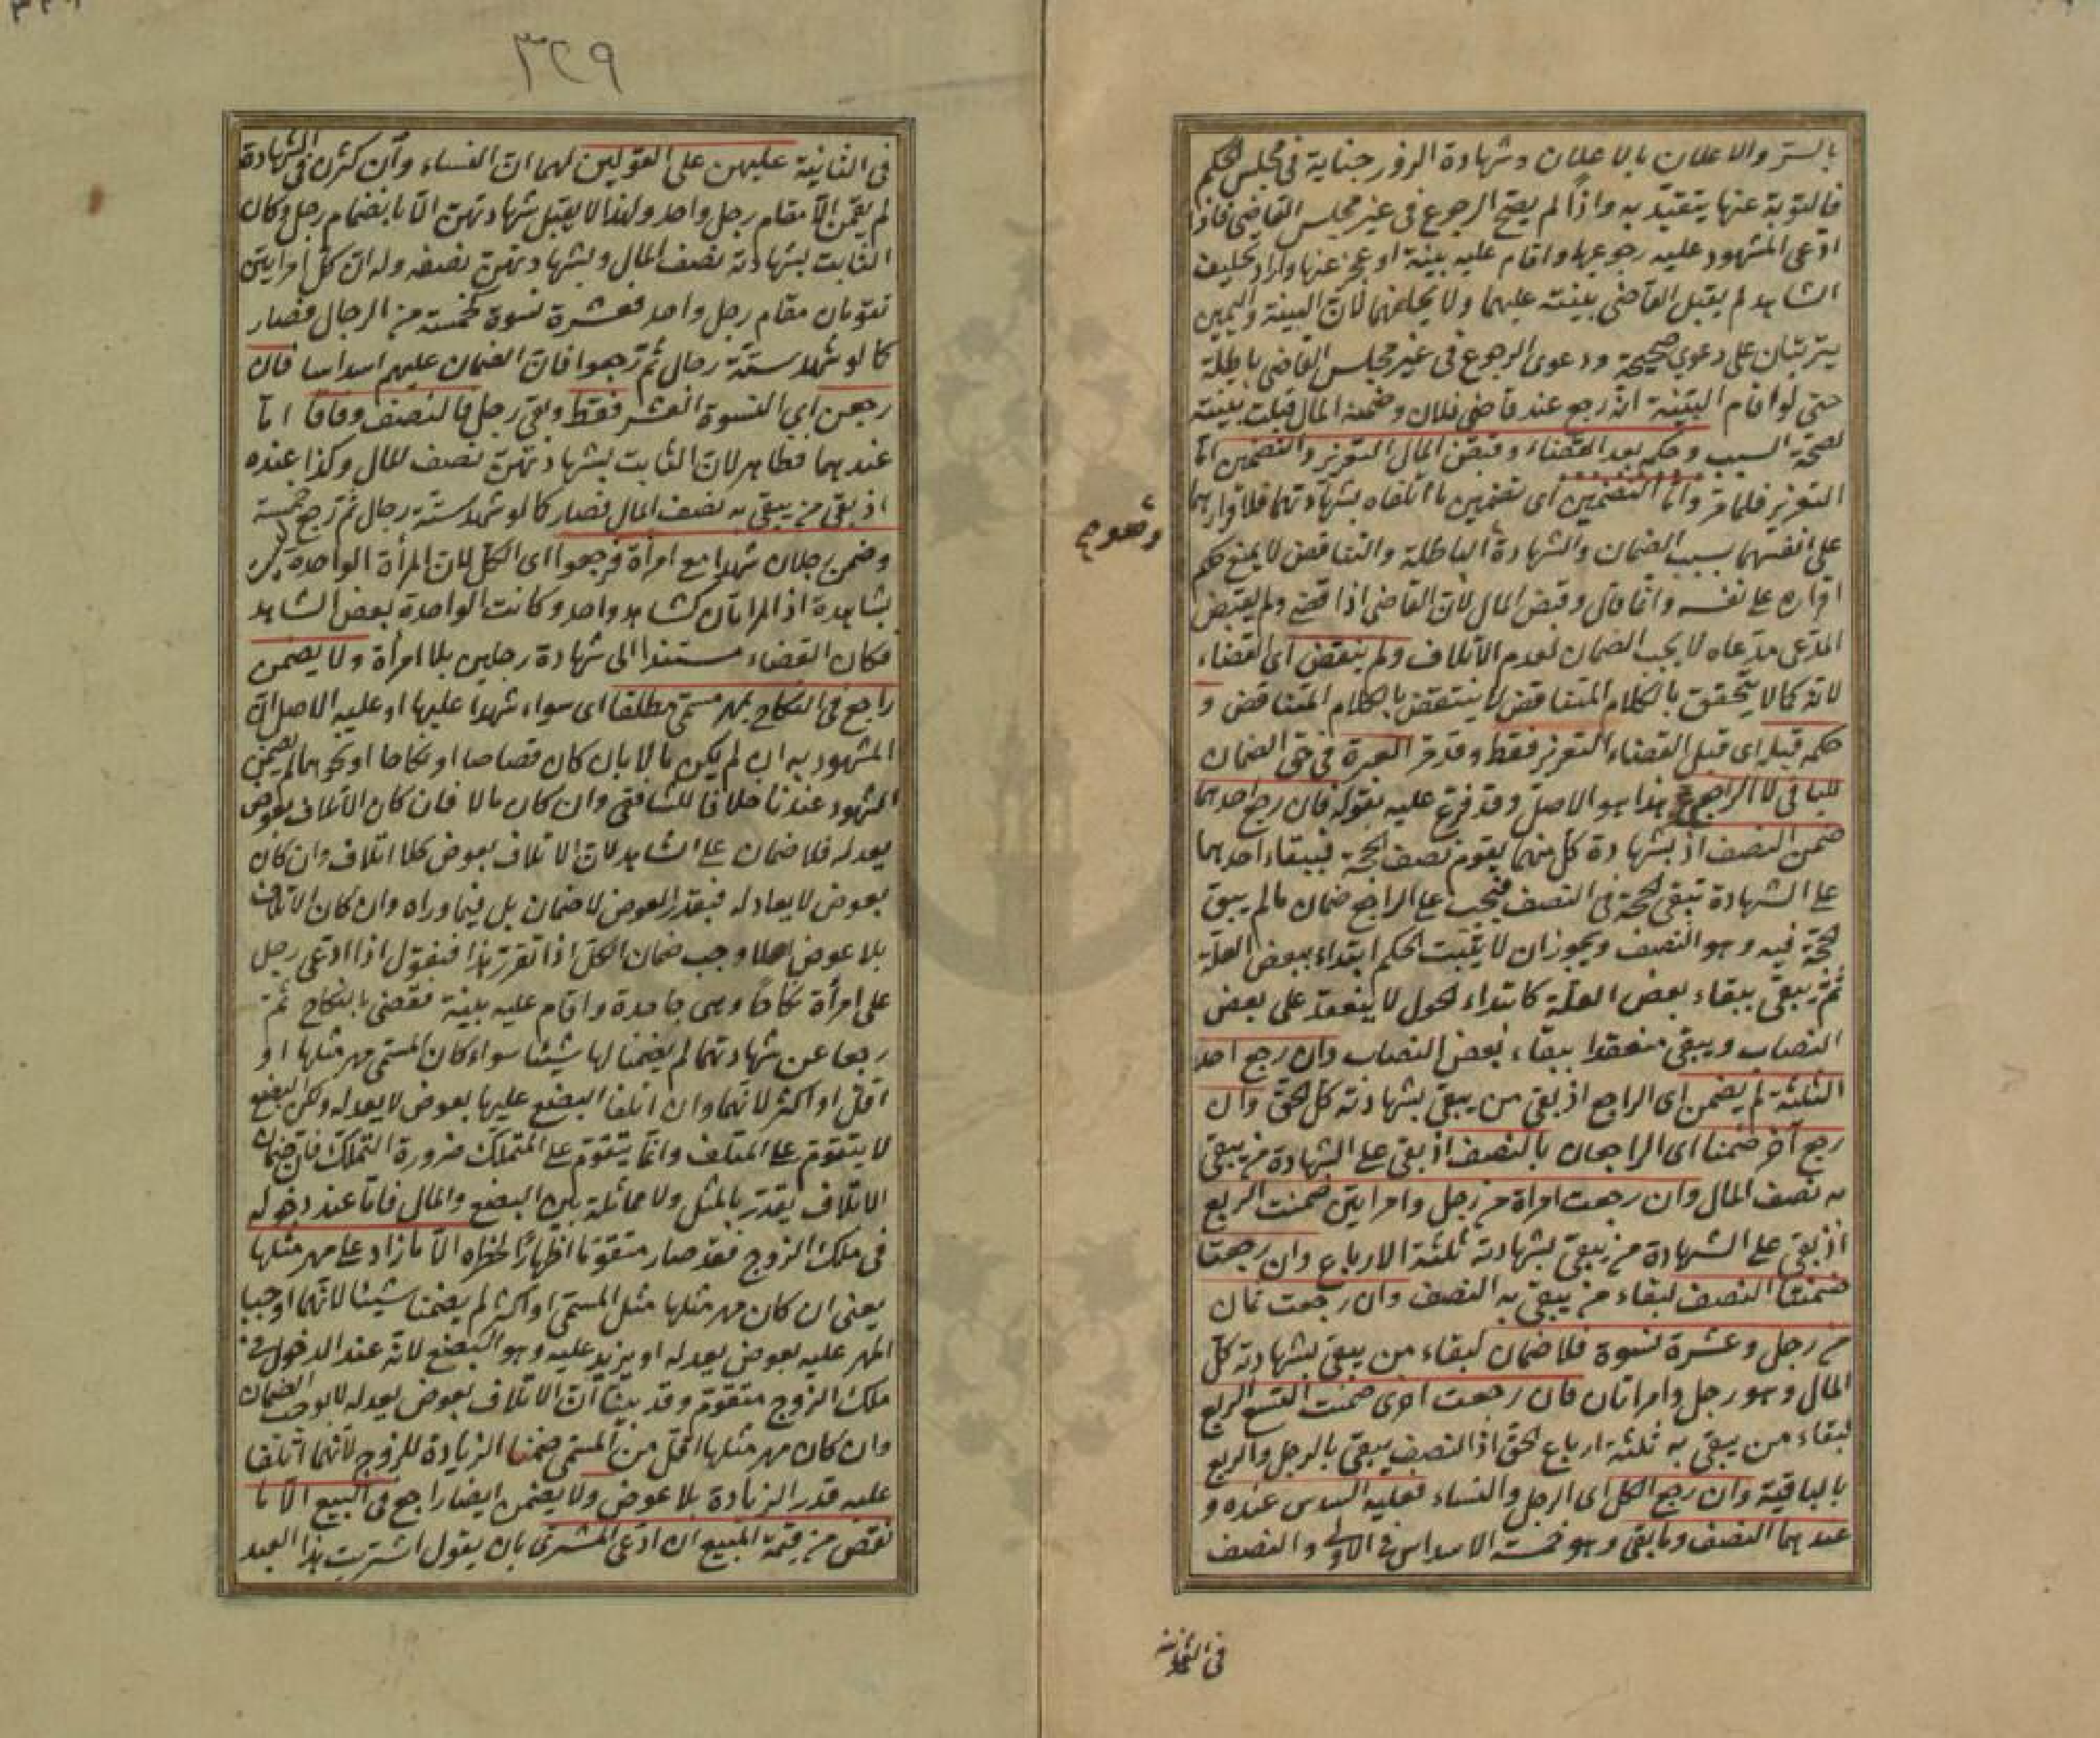 بالستر والاعلان بالاعلان وشهادة الزور جناية فى مجلس الحكم
فالتوبة عنها يتقيد به واذا لم يصح الرجوع فى غير مجلس القاضى فاذا
ادعى المشهود عليه رجوعهما واقام عليه بينة او عجز عنها واراد تحليف
الشاهد لم يقبل القاضى بينته عليهما ولا يحلفهما لان البينة واليمين
يترتبان على دعوى صحيحة ودعوى الرجوع فى غير مجلس القاضى باطلة
حتى لو اقام البينة انه رجع عند قاضى فلان وضمنه المال قبلت بينته
لصحة السبب وحكمه بعد القضاء وقبض المال التعزير والتضمين اما
التعزير فلما مر واما التضمين اى تضمين ما اتلفاه بشهادتهما فلاقرارهما
على انفسهما بسبب الضمان والشهادة الباطلة والتناقض لا يمنع حكم
اقراره على نفسه وانما قال وقبض المال لان القاضى اذا قضى ولم يقبض
المدعى مدعاه لا يجب الضمان لعدم الاتلاف ولم ينقض اى القضاء
لانه كما لا يتحقق بالكلام المتناقض لا ينتقض بالكلام المتناقض و
حكمه قبله اى قبل القضاء التعزير فقط وقد مر العبرة فى حق الضمان
للباقى لا الراجع هذا هو الاصل وقد فرع عليه بقوله فان رجع احدهما
ضمن النصف اذ بشهادة كل منهما يقوم نصف الحجة فببقاء احدهما
على الشهادة تبقى الحجة فى النصف فيجب على الراجع ضمان ما لم يبق
الحجة فيه وهو النصف ويجوز ان لا يثبت الحكم ابتداء ببعض العلة
ثم يبقى ببقاء بعض العلة كابتداء الحول لا ينعقد على بعض
النصاب ويبقى منعقدا ببقاء بعض النصاب وان رجع احد
الثلثة لم يضمن اى الراجع اذ بقى من يبقى بشهادته كل الحق وان
رجع آخر ضمنا اى الراجعان بالنصف اذ بقى على الشهادة من يبقى
به نصف المال وان رجعت امراة من رجل وامراتين ضمنت الربع
اذ بقى على الشهادة من يبقى بشهادته ثلثة الارباع وان رجعتا
ضمنتا النصف لبقاء من يبقى به النصف وان رجعت ثمان
من رجل وعشرة نسوة فلا ضمان لبقاء من يبقى بشهادته كل
المال وهو رجل وامراتان فان رجعت اخرى ضمنت التسع الربع
لبقاء من يبقى به ثلثة ارباع الحق اذ النصف يبقى بالرجل والربع
بالباقية وان رجع الكل اى الرجل والنساء فعليه السدس عنده و
عندهما النصف وما بقى وهو خمسة الاسداس فى الاولى والنصف
فى الثانية
فى الثانية عليهن على القولين لهما ان النساء وان كثرن فى الشهادة
لم يقمن الا مقام رجل واحد ولهذا لا يقبل شهادتهن الا بانضمام رجل وكان
الثابت بشهادته نصف المال وبشهادتهن نصفه وله ان كل امرايتن
تقومان مقام رجل واحد فعشرة نسوة كخمسة من الرجال فصار
كما لو شهد ستة رجال ثم رجعوا فان الضمان عليهم اسداسا فان
رجعن اى النسوة العشر فقط وبقى رجل فالنصف وفاقا اما
عندهما فظاهر لان الثابت بشهادتهن نصف المال وكذا عنده
اذ بقى من يبقى به نصف المال فصار كما لو شهد ستة رجال ثم رجع خمسة
وضمن رجلان شهدا مع امرأة فرجعوا اى الكل لان المرأة الواحدة ليس
بشاهدة اذ المراتان كشاهد واحد وكانت الواحدة بعض الشاهد
فكان القضاء مستندا الى شهادة رجلين بلا امرأة ولا يضمن
راجع فى النكاح بمهر مسمى مطلقا اى سواء شهدا عليها او عليه الاصل ان
المشهود به ان لم يكن مالا بان كان قصاصا او نكاحا او نحوهما لم يضمن
الشهود عندنا خلافا للشافعى وان كان مالا فان كان الاتلاف بعوض
يعدله فلا ضمان على الشاهد لان الاتلاف بعوض كلا اتلاف وان كان
بعوض لا يعادله فبقدر العوض لا ضمان بل فيما وراه وان كان الاتلاف
بلا عوض اصلا وجب ضمان الكل اذا تقرر هذا فنقول اذا ادعى رجل
على امرأة نكاحا وهى جاحدة واقام عليه بينة فقضى بالنكاح ثم
رجعا عن شهادتهما لم يضمنا لها شيئا سواء كان المسمى مهر مثلها او
اقل او اكثر لانهما وان اتلفا البضع عليها بعوض لا يعدله ولكن البضع
لا يتقوم على المتلف وانما يتقوم على المتملك ضرورة التملك فان ضمان
الاتلاف يقدر بالمثل ولا مماثلة بين البضع والمال فاما عند دخوله
فى ملك الزوج فقد صار متقوما اظهارا لخطره الا ما زاد على مهر مثلها
يعنى ان كان مهر مثلها مثل المسمى او اكثر لم يضمنا شيئا لانهما اوجبا
المهر عليه بعوض يعدله او يزيد عليه وهو البضع لانه عند الدخول فى
ملك الزوج متقوم وقد بينا ان الاتلاف بعوض يعدله لا يوجب الضمان
وان كان مهر مثلها اقل من المسمى ضمنا الزيادة للزوج لانهما اتلفا
عليه قدر الزيادة بلا عوض ولا يضمن ايضا راجع فى البيع الا ما
نقص من قيمة المبيع ان ادعى المشترى بان يقول اشتريت هذا العبد
٣٢٩